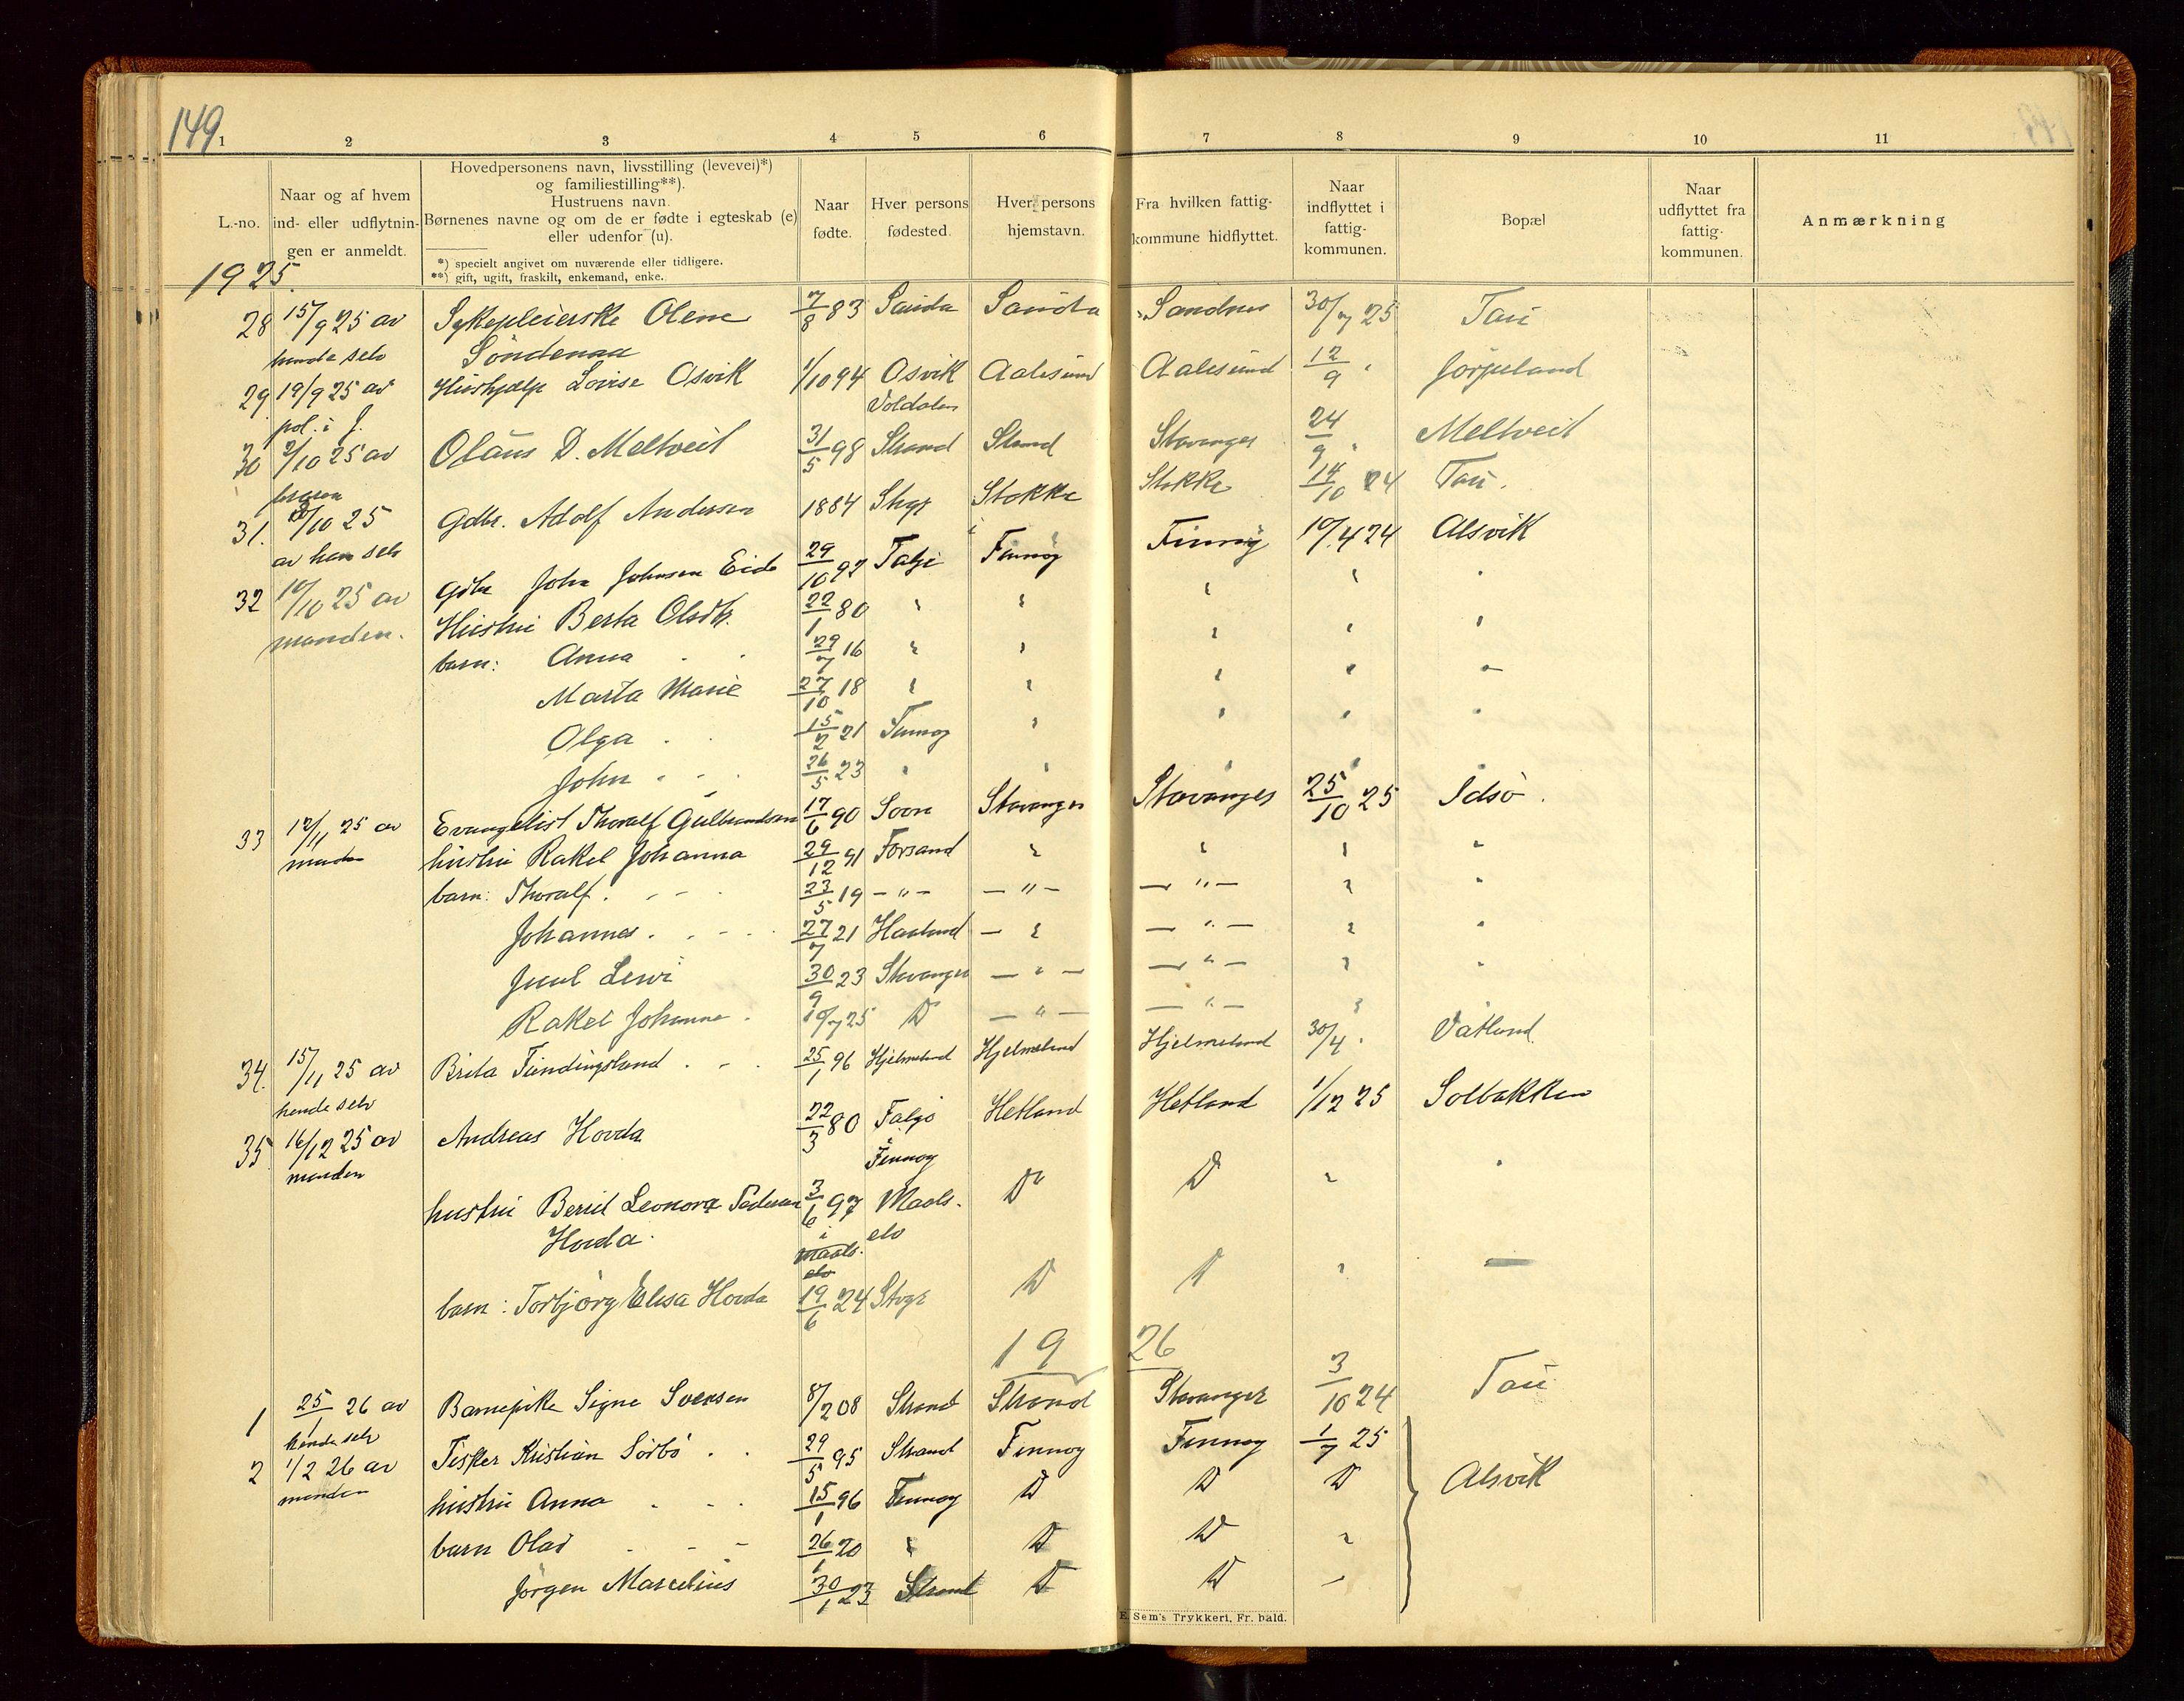 149
1 2 3 4 5 6 7 8 9 10 11
L.-no.
Naar og af hvem
ind- eller udflytnin-
gen er anmeldt.
Hovedpersonens navn, livsstilling (levevei)*)
og familiestilling**).
Hustruens navn.
Børnenes navne og om de er fødte i egteskab (e)
eller udenfor (u).
*) specielt angivet om nuværende eller tidligere.
**) gift, ugift, fraskilt, enkemand, enke.
Naar
fødte.
Hver persons
fødested.
Hver persons
hjemstavn.
Fra hvilken fattig-
kommune hidflyttet.
Naar
indflyttet i
fattig-
kommunen.
Bopæl
Naar
udflyttet fra
fattig-
kommunen.
Anmærkning
1925.
28 15/9 25 av Sykepleierske Olene 7/8 83 Sauda Sauda Sandnes 30/7 25 Tau
hende selv Söndenaa
29 19/9 25 av Hushjælp Lovise Osvik 1/10 94 Osvik Aalesund Aalesund 12/9 " Jörpeland
pol. i J. Voldalen
30 2/10 25 av Olaus D. Meltveit 31/5 98 Strand Strand Stavanger 24/9 " Meltveit
31. /10 25 Gdbr. Adolf Andersen 1884 Stvgr Stokke Stokke 14/10 24 Tau.
av han selv
32 10/10 25 av Gdbr John Johnsen Eide 29/10 92 Talje Finnöy Finnöy 10/4 24 Alsvik
manden. Hustru Berta Olsdtr. 22/1 80 " " " " "
barn: Anna 29/7 16 " " " " "
Marta Marie 27/10 18 " " " " "
Olga 15/2 21 Finnöy " " " "
John 26/5 23 " " " " "
33 12/11 25 av Evangelist Thoralf Gulbrandsen 17/6 90 Stavanger Stavanger 25/10 25 Idsö.
manden hustru Rakel Johanna 29/12 91 Forsand " " " "
barn: Thoralf. 23/5 19 — " — — " — — " — " "
Johannes. 27/7 21 Haaland — " — " — " "
Juul Lewi 30/9 23 Stavanger — " — — " — " "
Rakel Johanne. 10/7 25 D — " — — " — "
34. 15/11 25 av Brita Tundingsland 25/1 96 Hjelmeland Hjelmeland Hjelmeland 30/4 " Vatland
hende selv
35 16/12 25 av Andreas Hovda 22/3 80 Talje Hetland Hetland 1/12 25 Solbakken
manden Finnöy
hustru Berit Leonora Pedersen 3/6 97 Maals- D D " "
Hovda. i Maals- elv elv
barn: Torbjörg Elisa Hovda 19/6 24 Stvgr D D " —
19 26
1 25/1 26 av Barnepike Signe Svensen 8/2 08 Strand Strand Stavanger 3/10 24 Tau
hende selv
2 1/2 26 av Fisker Kristian Sörbö 29/5 95 Strand Finnöy Finnöy 1/7 25
manden hustru Anna 15/1 96 Finnöy D D D Alsvik
barn Olav 26/1 20 " D D "
Jörgen Marcelius 30/1 23 Strand D D "
E. Sem's Trykkeri, Fr. hald.